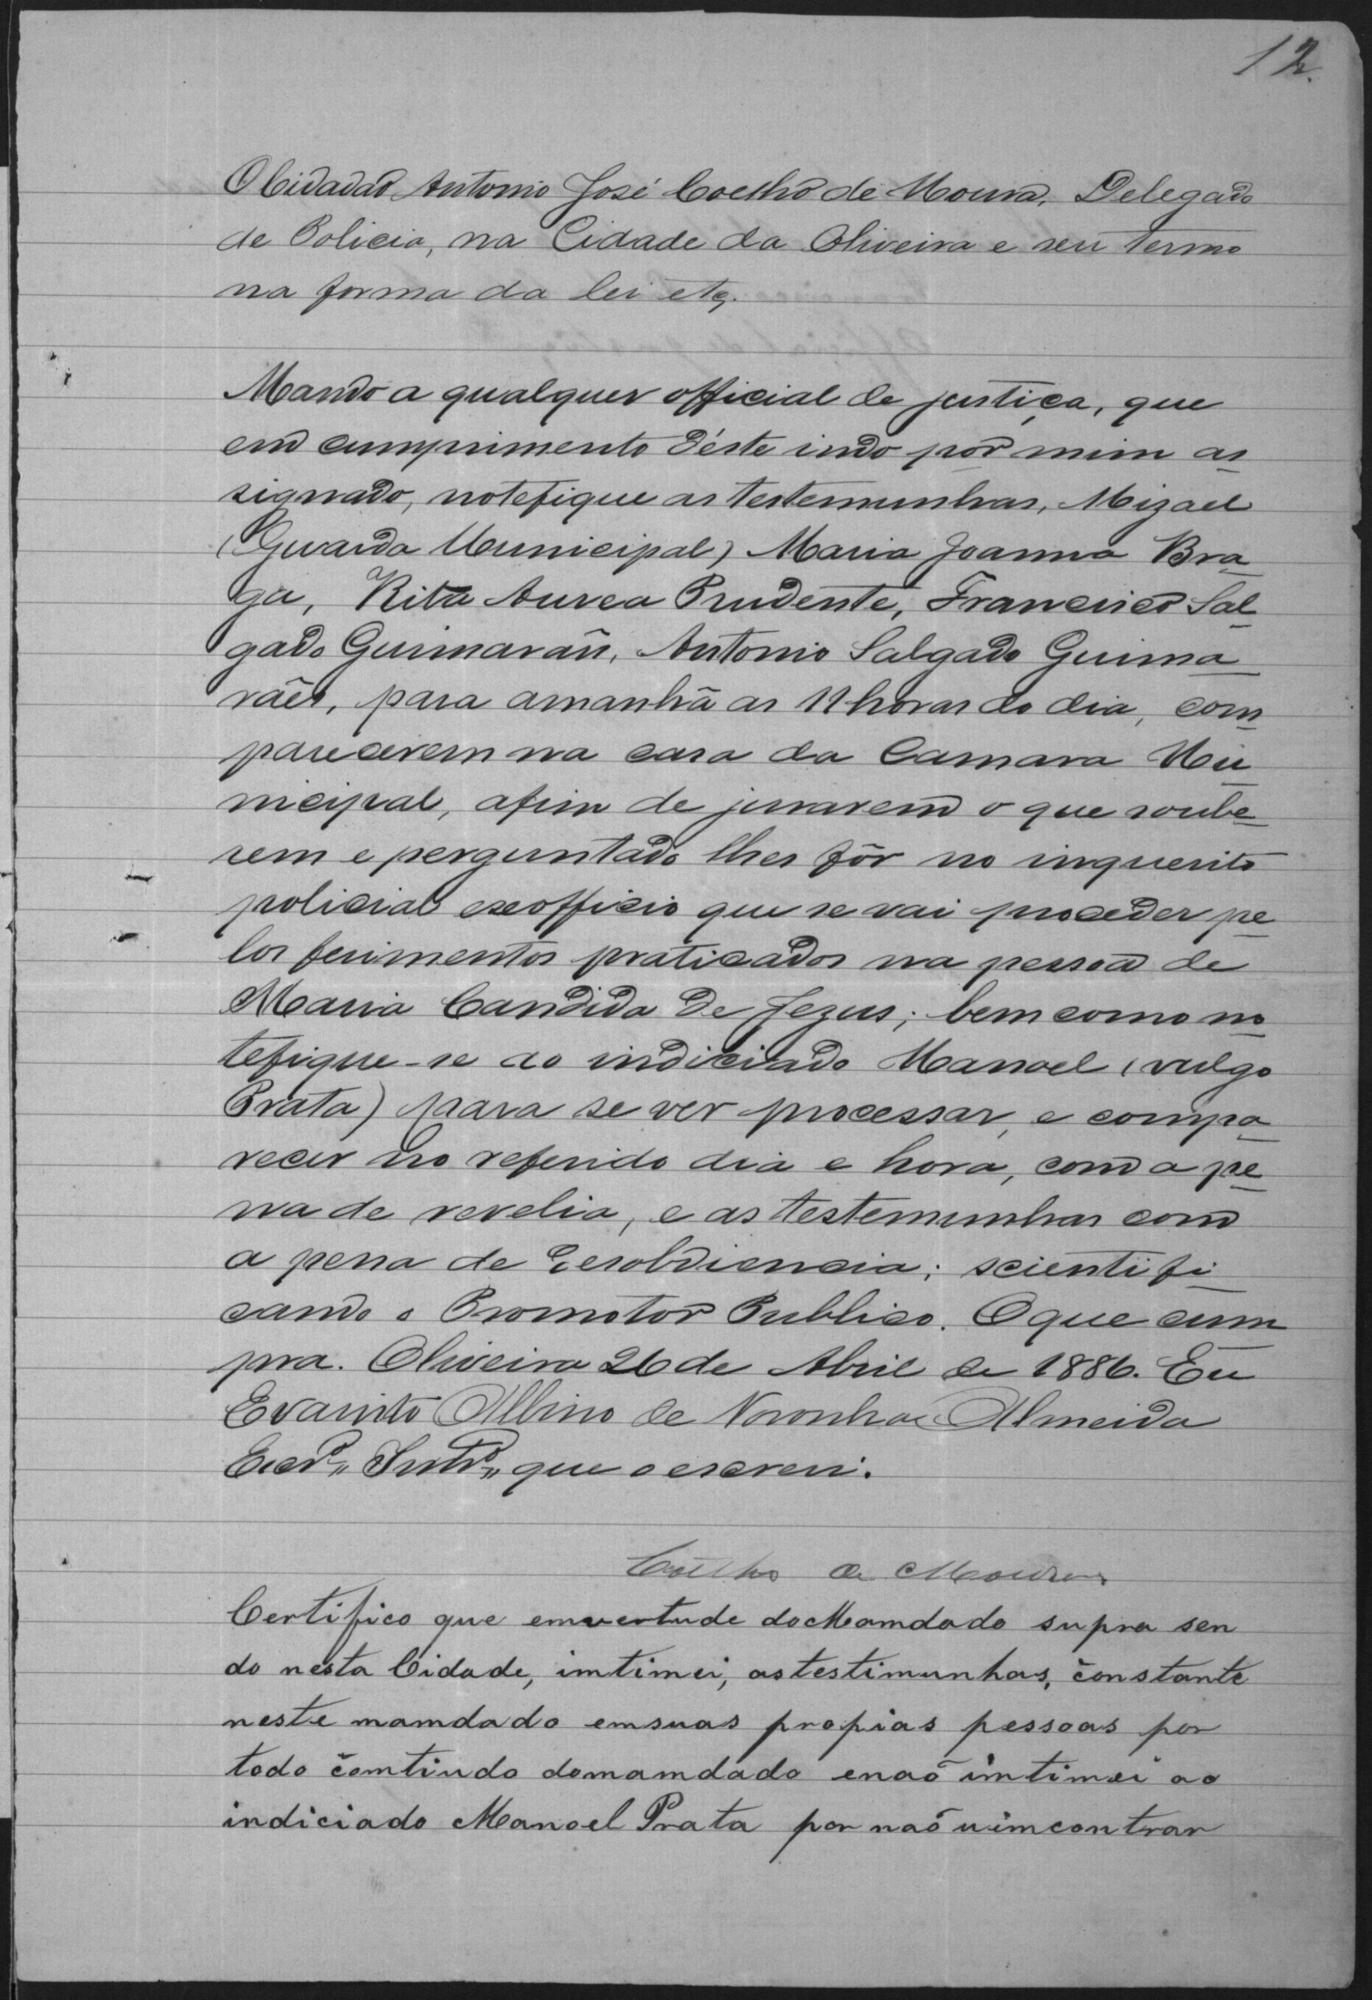 12.
O Cidadão Antonio José Coelho de Moura, Delegado
de Policia, na Cidade da Oliveira e seu termo
na forma da lei etc.
Mando a qualquer official de justiça, que
em cumprimento d'éste indo por mim as
signado, notefique as testemunhas, Mizael
(Guarda Municipal) Maria Joanna Bra
ga, Rita Aurea Prudente, Francisco Sal
gado Guimarães, Antonio Salgado Guima
rães, para amanhã as 11 horas do dia, com
parecerem na casa da Camara Mu
nicipal, afim de jurarem o que soube
rem e perguntado lhes fôr no inquerito
policial exofficio que se vai proceder pe
los ferimentos praticados na pessoa de
Maria Candida de Jezus; bem como no
tefique-se ao indiciado Manoel (vulgo
Prata) para se ver processar, e compa
recer no referido dia e hora, com a pe
na de revelia, e as testemunhas com
a pena de desobdiencia; scientifi
cando o Promotor Publico. O que cum
pra. Oliveira 26 de Abril de 1886. Eu
Evaristo Albino de Noronha Almeida
que o escrevi.
Coelho de Moura
Certifico que emvertude do Mamdado supra sen
do nesta Cidade, imtimei, as testimunhas, constante
neste mamdado em suas propias pessoas por
todo comtiudo domamdado enaõ imtimei ao
indiciado Manoel Prata por naõ uimcontrar